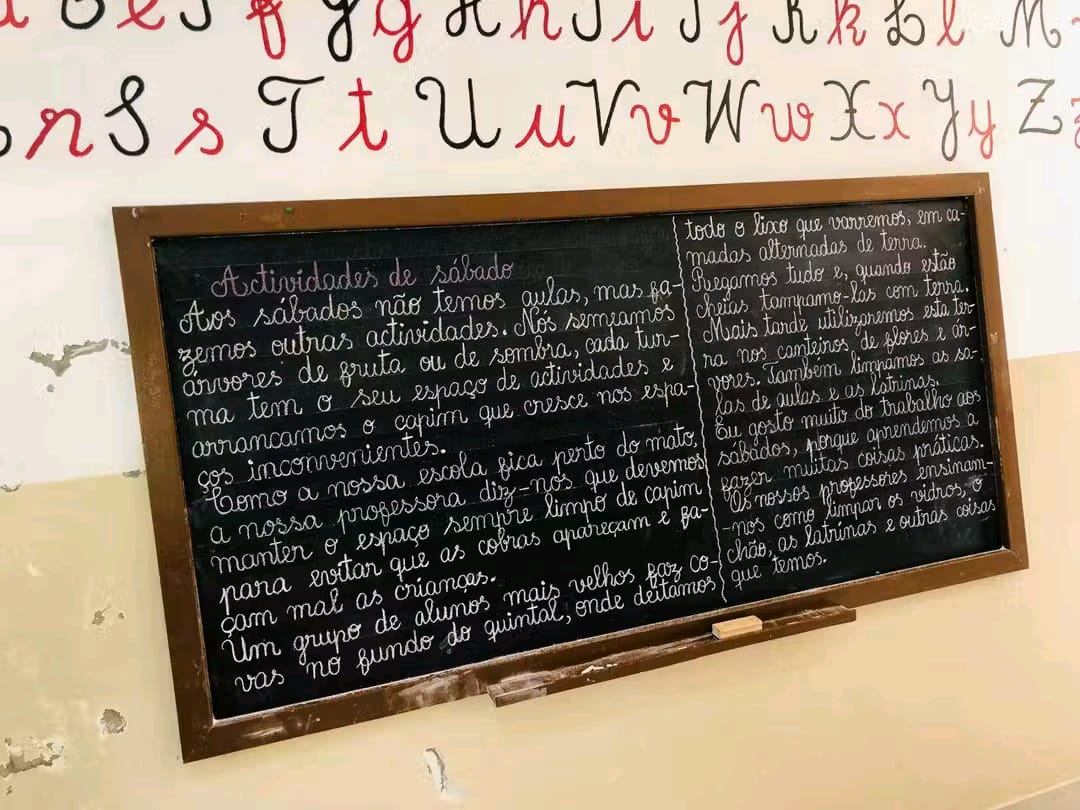 e f Y g H h I i J j K k L l M
r S s T t U u V v W w X x Y y Z z
Actividades de sábado
Aos sábados não temos aulas, mas fa-
zemos outras actividades. Nós semeamos
árvores de fruta ou de sombra, cada tur-
ma tem o seu espaço de actividades e
arrancamos o capim que cresce nos espa-
ços inconvenientes.
Como a nossa escola fica perto do mato,
a nossa professora diz-nos que devemos
manter o espaço sempre limpo de capim
para evitar que as cobras apareçam e fa-
çam mal as crianças.
Um grupo de alunos mais velhos faz co-
vas no fundo do quintal, onde deitamos
todo o lixo que varremos, em ca-
madas alternadas de terra.
Regamos tudo e, quando estão
cheias tampamo-las com terra.
Mais tarde utilizaremos esta ter-
ra nos canteiros de flores e ár-
vores. Tambem limpamos as sa-
las de aulas e as latrinas.
Eu gosto muito do trabalho aos
sábados, porque aprendemos a
fazer muitas coisas práticas.
Os nossos professores ensinam-
-nos como limpar os vidros, o
chão, as latrinas e outras coisas
que temos.